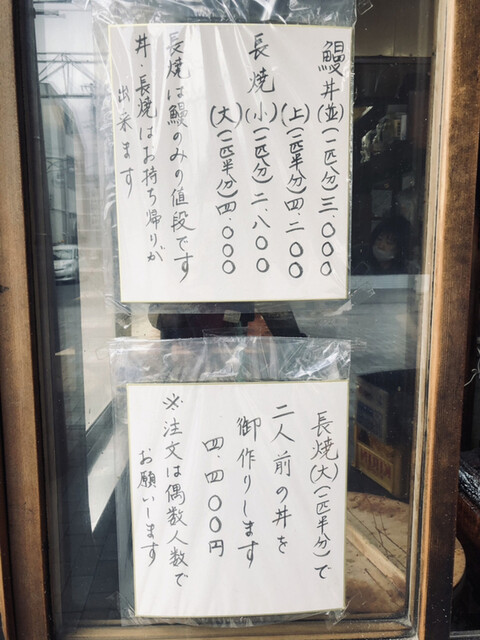 鰻丼(並)(一匹分)三.〇〇〇
(上)(一匹半分)四.二〇〇
長焼(小)(一匹分)二.八〇〇
(大)(一匹半分)四.〇〇〇
長焼は鰻のみの値段です
丼・長焼はお持ち帰りが
出来ます
長焼(大)(一匹半分)で
二人前の丼を
御作りします
四.四〇〇円
※注文は偶数人数で
お願いします